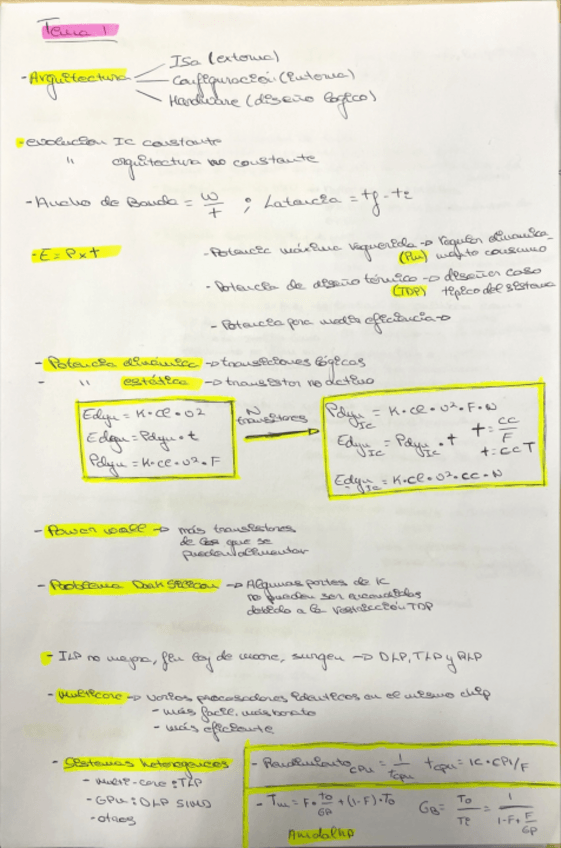 Tema 1
- Arquitectura
ISa (externa)
Configuración (interna)
Hardware (diseño lógico)
- evolucion Ic constante
" arquitectura no constante
- Ancho de Banda = w/t ; Latencia = tf - ti
- E = P x t
- Potencia máxima requerida → requier dinamica
(Pm) mayto consumo
- Potencia de diseño térmico → diseñar caso
(TDP) típico del sistema
- Potencia para media eficiencia →
- Potencia dinámica → transiciones lógicas
- " estática → transistor no activo
Edyn = K · Cl · v2
Edyn = Pdyn · t
Pdyn = K · Cl · v2 · F
N transitores
Pdyn Ic = K · Cl · v2 · F · N
Edyn Ic = Pdyn Ic · t
t = cc/F
t = cc T
Edyn Ic = K · Cl · v2 · cc · N
- Power wall → más transistores
de los que se
pueden alimentar
- Problema Dark Silicon → Algunas partes de IC
no pueden ser encendidas
debido a la restricción TDP
- ILP no mejora, fin ley de moore, surgen → DLP, TLP y RLP
- Multicore → varios procesadores identicos en el mismo chip
- más facil, más barato
- más eficiente
- Sistemas heterogeneos
- multi-core : TLP
- GPU : DLP SIMD
- otros
- Rendimiento CPU = 1/tcpu tcpu = IC · CPI/F
- Tm = F · To/GP + (1-F) · To
GB = To/Ti = 1/(1-F+F/GP)
Amdalhp